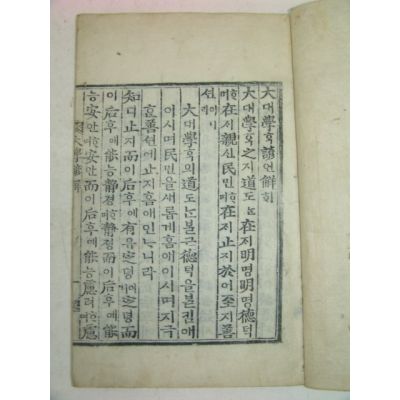 大대學학諺언解ᄒᆡ
大대學학之지道도ᄂᆞᆫ在ᄌᆡ明명明명德덕
ᄒᆞ며在ᄌᆡ親신民민ᄒᆞ며在ᄌᆡ止지於어至지善
션이니라
大대學학의道도ᄂᆞᆫ볼근德덕을볼킴애
이시며民민을새롭게홈애이시며지극
ᄒᆞᆫ善션에止지홈애인ᄂᆞ니라
知디止지而이后후에有유定뎡이니定뎡而
이后후에能능静졍ᄒᆞ며静졍而이后후에
能능安안ᄒᆞ며安안而이后후에能능慮려ᄒᆞ며慮
大學諺解